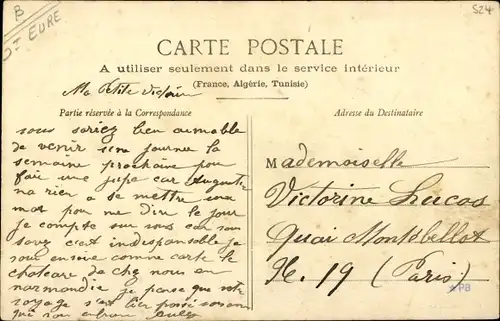 B
Dt EURE
524
CARTE POSTALE
A utiliser seulement dans le service intérieur
(France, Algérie, Tunisie)
Ma Petite Victoire
Partie réservée à la Correspondance
Adresse du Destinataire
vous seriez bien aimable
de venir une journée la
semaine prochaine pour
faire une jupe car Augustine
na rien a se mettre un
mot pou me dire le jour
je compte sur vous car vous
savez c'est indispensable je
vous envoie comme carte le
chateau de chez nous en
normandie je pense que votre
voyage s'est bien passé
qui
Mademoiselle
Victorine Lucas
Quai Montebellot
N. 19 (Paris)
PB